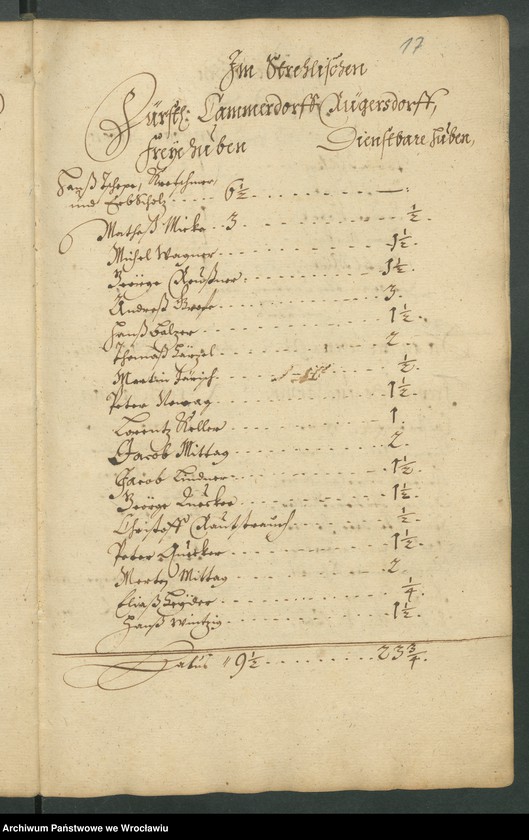 17
Im Strehlischen
Fürstl: Cammerdorff Rügersdorff,
Freye huben Dienstbare huben,
Hanß Tschepe, Kretschmer,
und Erbscholz ..... 6½ ..... —.
Matheß Micke .. 3 ..... ½.
Michel Wagner ..... 1½.
George Reußner ..... 1½.
Andreß ..... 3.
Hanß Balzer ..... 1½.
Thomaß ..... 2.
Martin Járisch ..... ½.
Peter Nowag ..... 1½.
Lorentz Keller ..... 1.
Jacob Mittag ..... 2.
Jacob Lindner ..... 1½.
George ..... 1½.
Christoff Rautstrauch ..... ½.
Peter ..... 1½.
Merten Mittag ..... 2
Eliaß ..... ¼.
Hanß Wintzig ..... 1½.
Latus " 9½ ..... 23¾.
Archiwum Państwowe we Wrocławiu